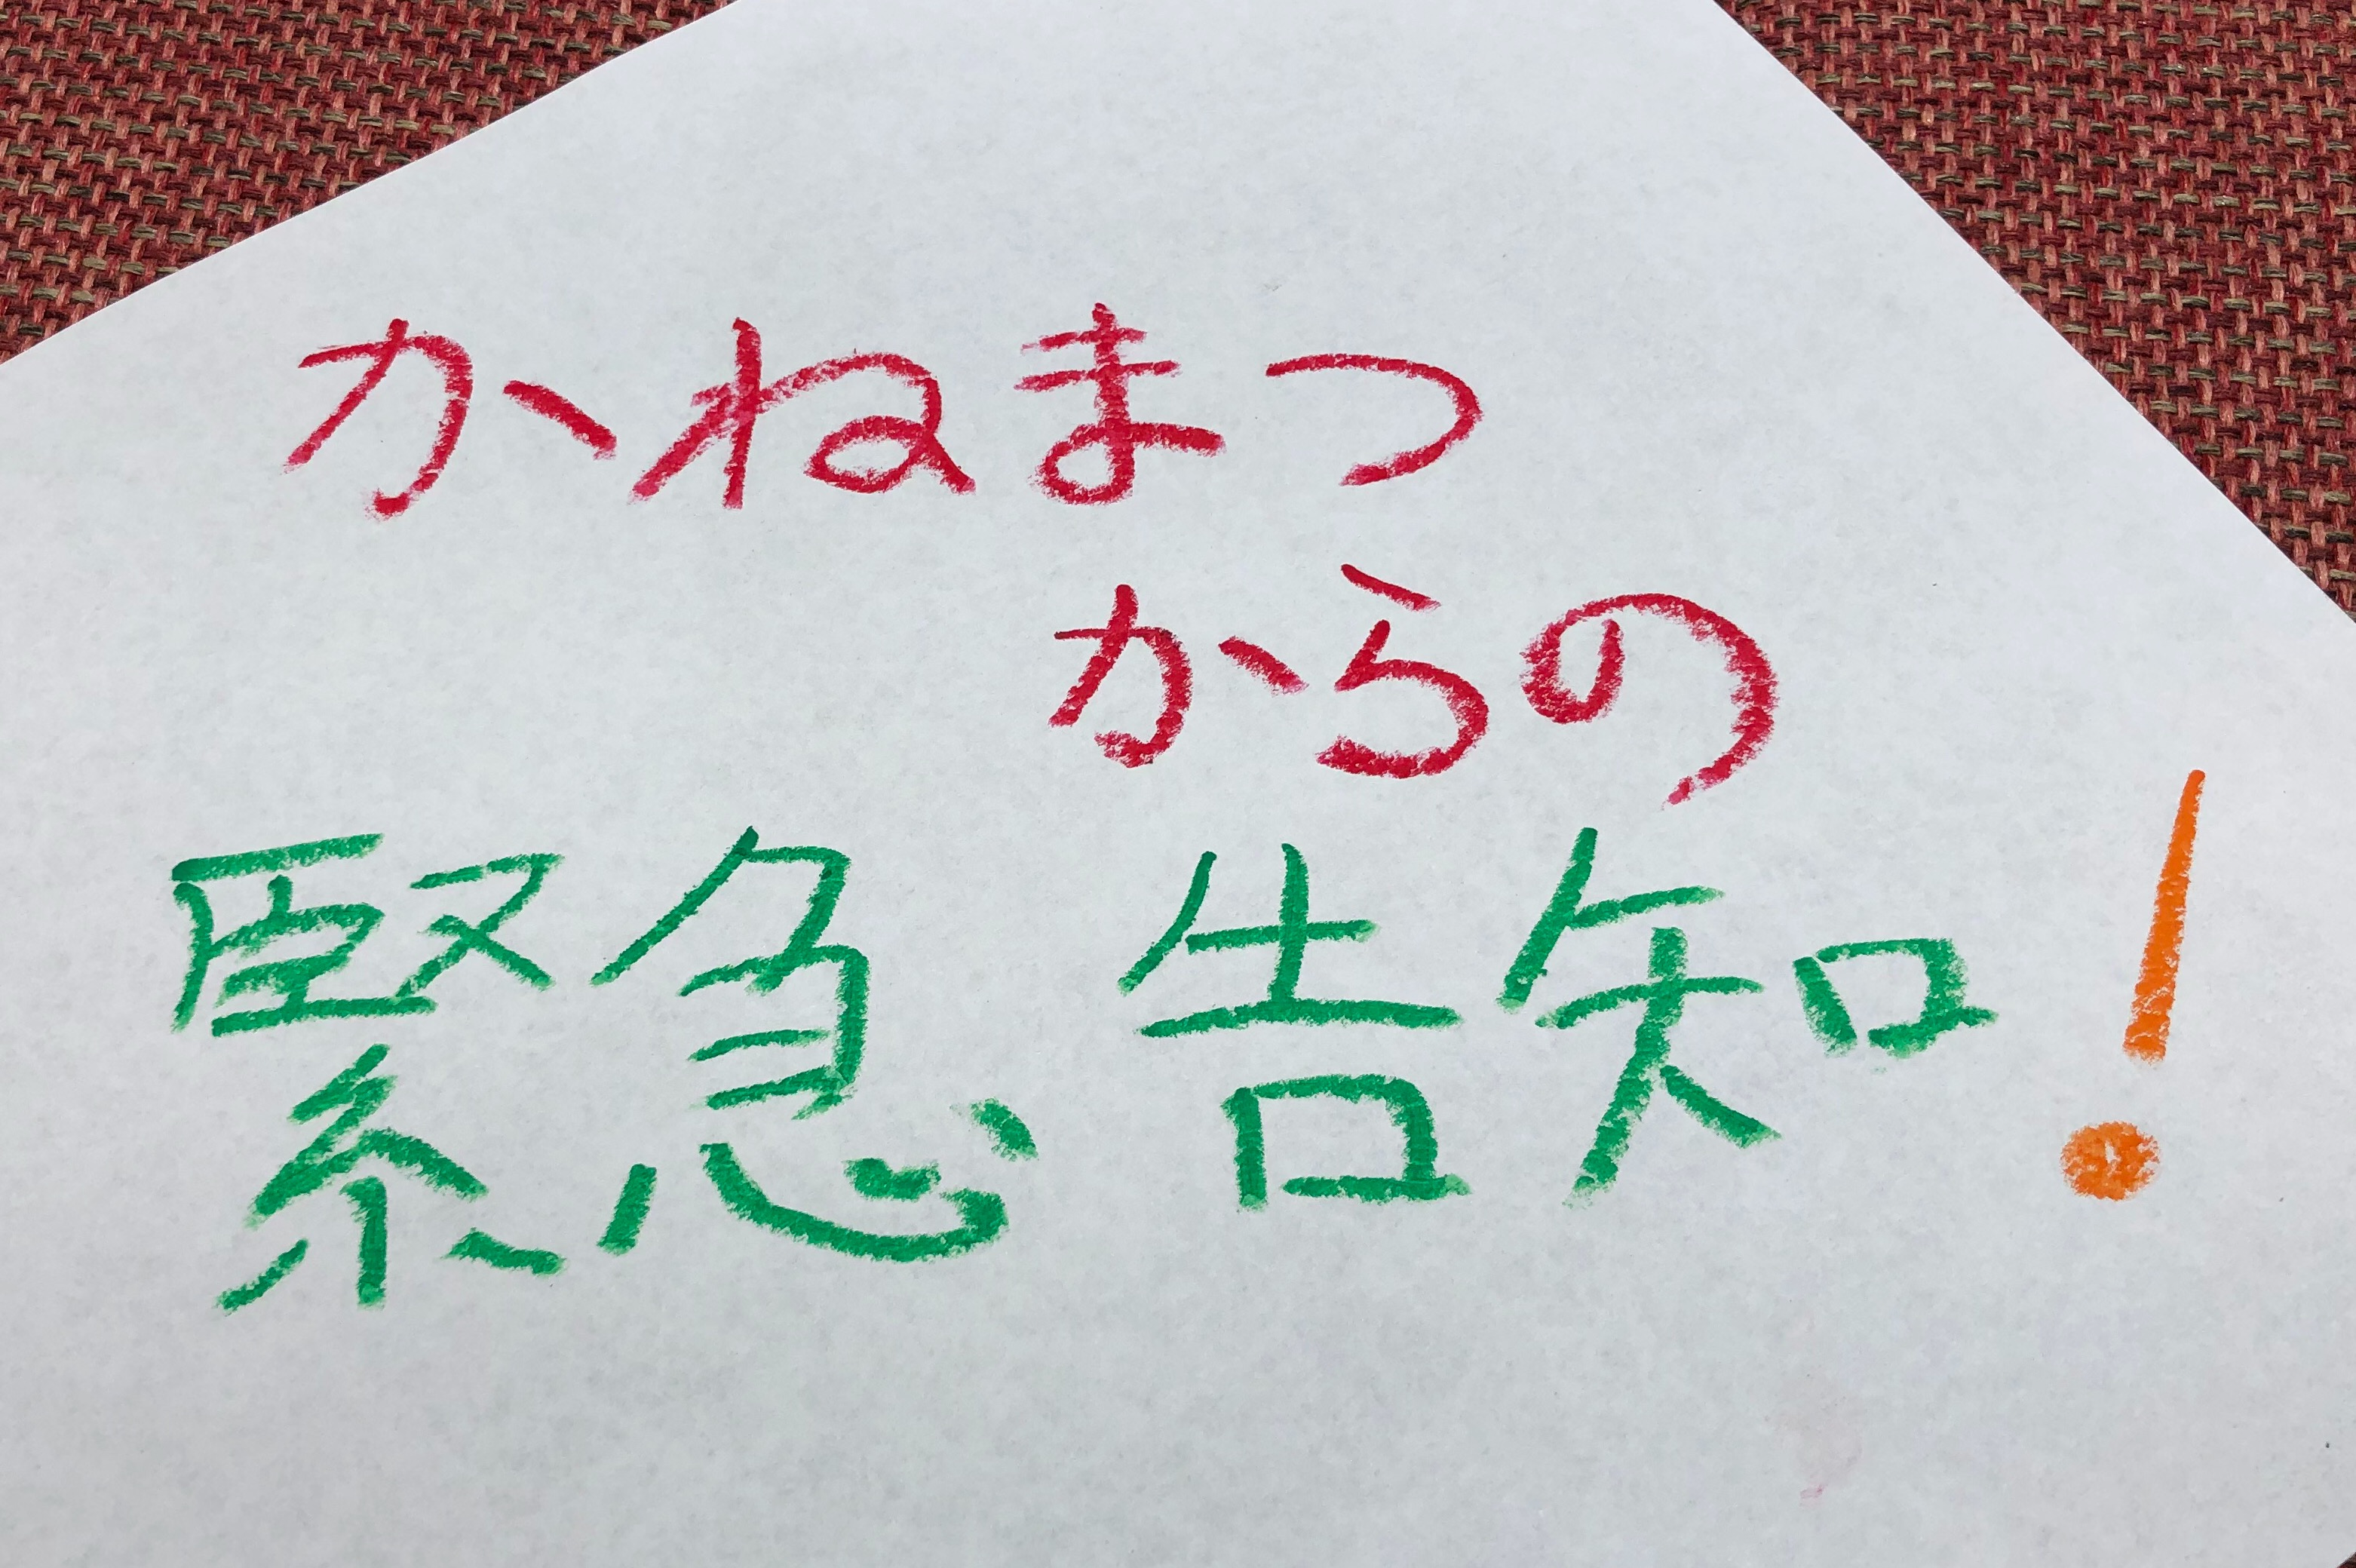 かねまつ
からの
緊急告知!